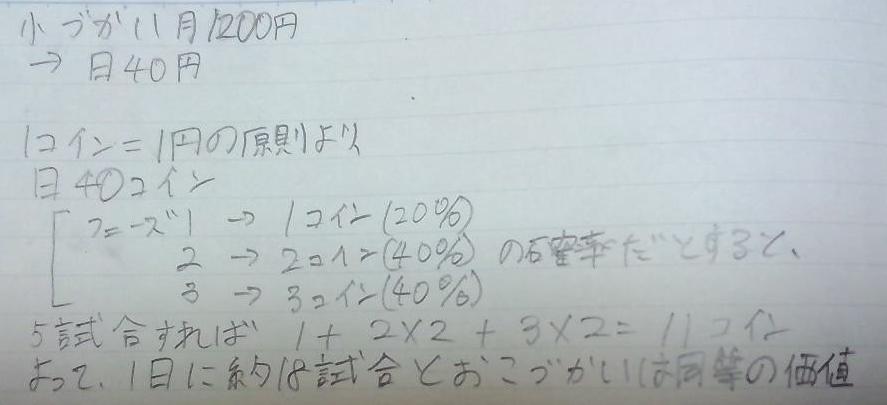 小づかい月1200円
→ 日40円
1コイン=1円の原則より
日40コイン
フェーズ1 → 1コイン(20%)
2 → 2コイン(40%) の確率だとすると、
3 → 3コイン(40%)
5試合すれば 1+2×2+3×2=11コイン
よって、1日に約18試合とおこづかいは同等の価値